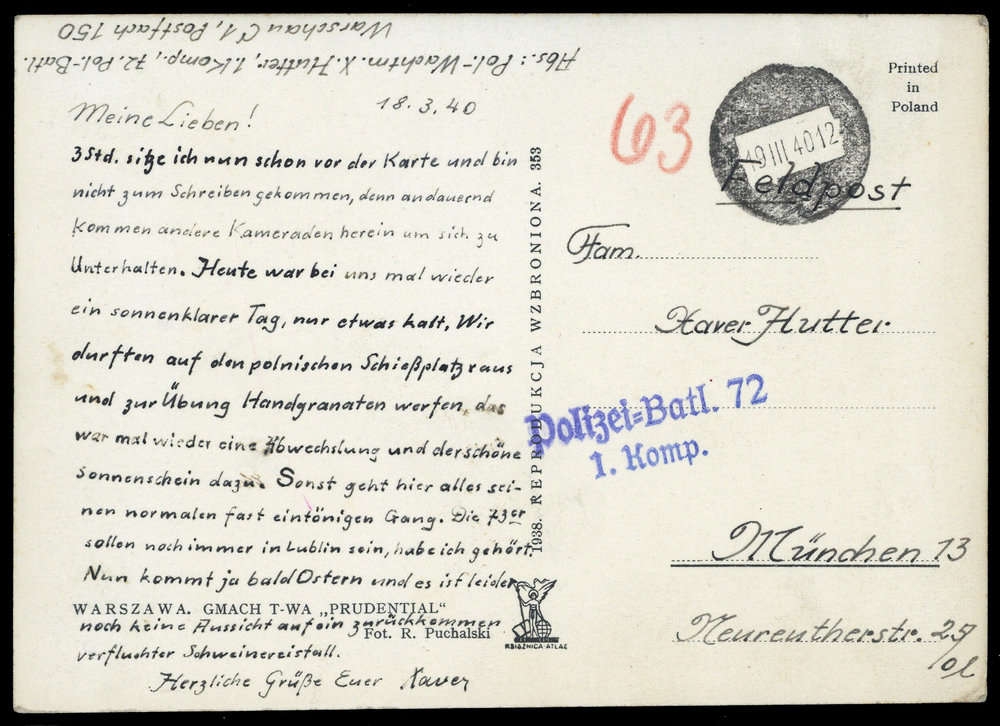 Abs.: Pol.-Wachtm. X. Hutter, 1. Komp., 72. Pol.-Batl.
Warschau C 1, Postfach 150
18.3.40
Meine Lieben!
3 Std. sitze ich nun schon vor der Karte und bin
nicht zum Schreiben gekommen, denn andauernd
kommen andere Kameraden herein um sich zu
Unterhalten. Heute war bei uns mal wieder
ein sonnenklarer Tag, nur etwas kalt, Wir
durften auf den polnischen Schießplatz raus
und zur Übung Handgranaten werfen, das
war mal wieder eine Abwechslung und der schöne
Sonnenschein dazu. Sonst geht hier alles sei-
nen normalen fast eintönigen Gang. Die 73er
sollen noch immer in Lublin sein, habe ich gehört.
Nun kommt ja bald Ostern und es ist leider
noch keine Aussicht auf ein zurückkommen
verfluchter Schweinereistall.
Herzliche Grüße Euer Xaver
WARSZAWA. GMACH T-WA „PRUDENTIAL"
Fot. R. Puchalski
1938. REPRODUKCJA WZBRONIONA. 353
KSIĄŻNICA-ATLAS
Printed
in
Poland
63
19 III 40 12
Feldpost
Fam.
Xaver Hutter
Polizei=Batl. 72
1. Komp.
München 13
Neureutherstr. 29